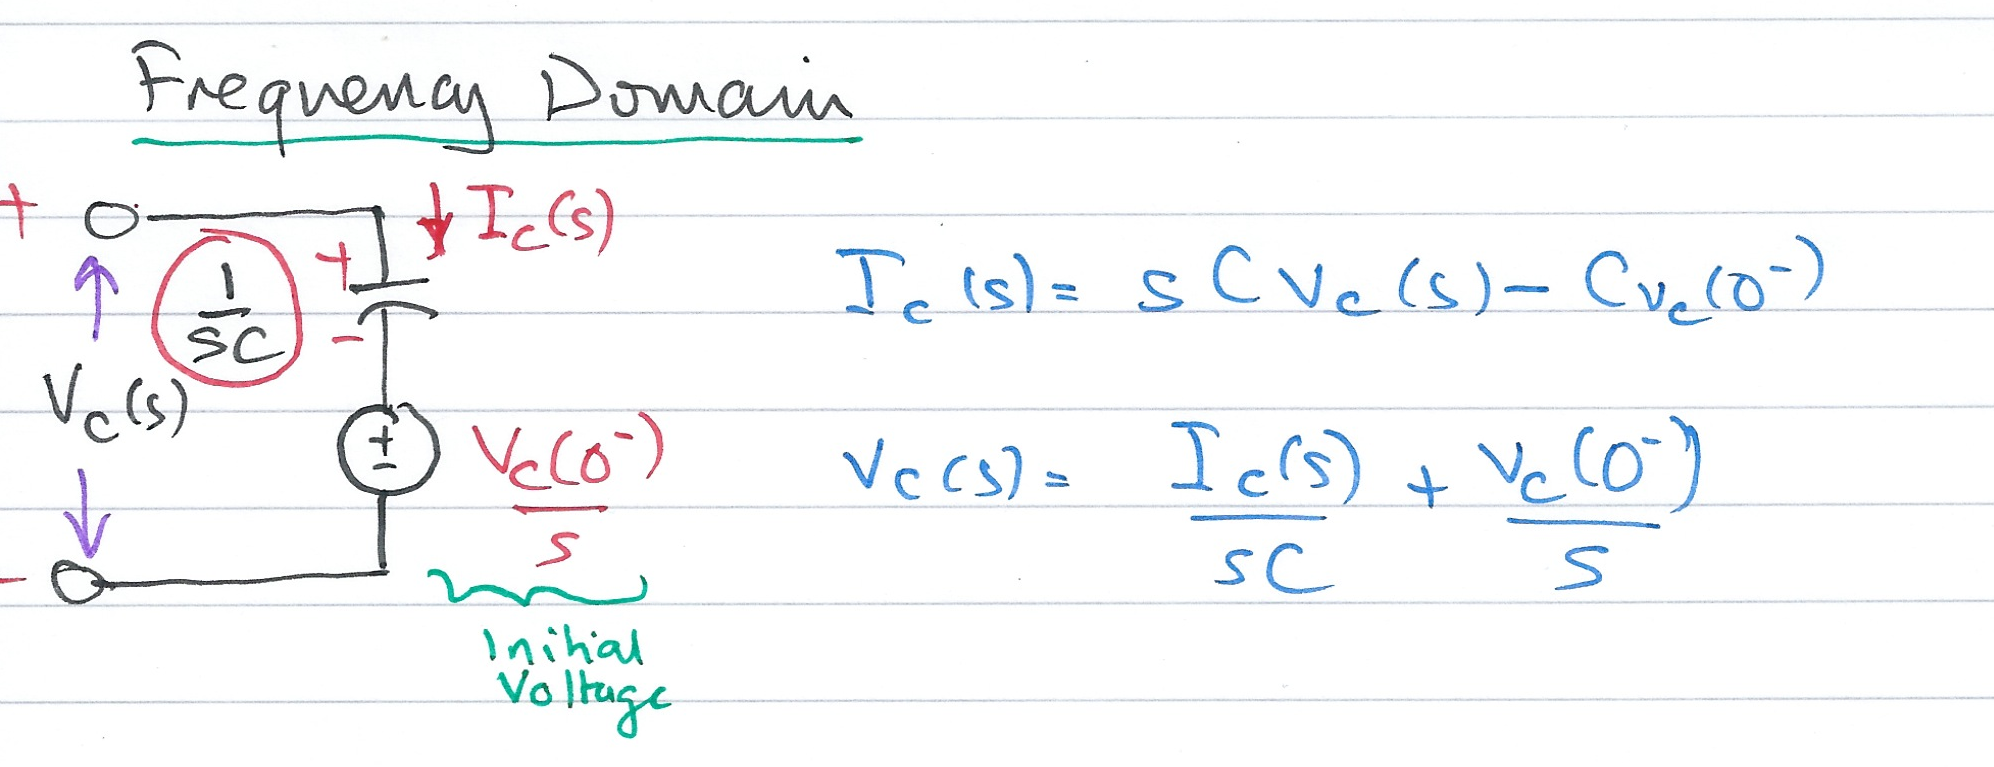 Frequency Domain
+
I_c(s)
1/sC
+
-
V_c(s)
+
-
V_c(0⁻)/s
-
Initial
Voltage
I_c(s) = sCV_c(s) - Cv_c(0⁻)
V_c(s) = I_c(s)/sC + v_c(0⁻)/s